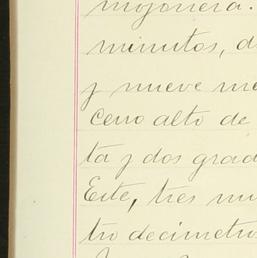 mojonera.
minutos, d
y nueve me
Cerro alto de
ta y dos grad
Este, tres mi
tro decimetro